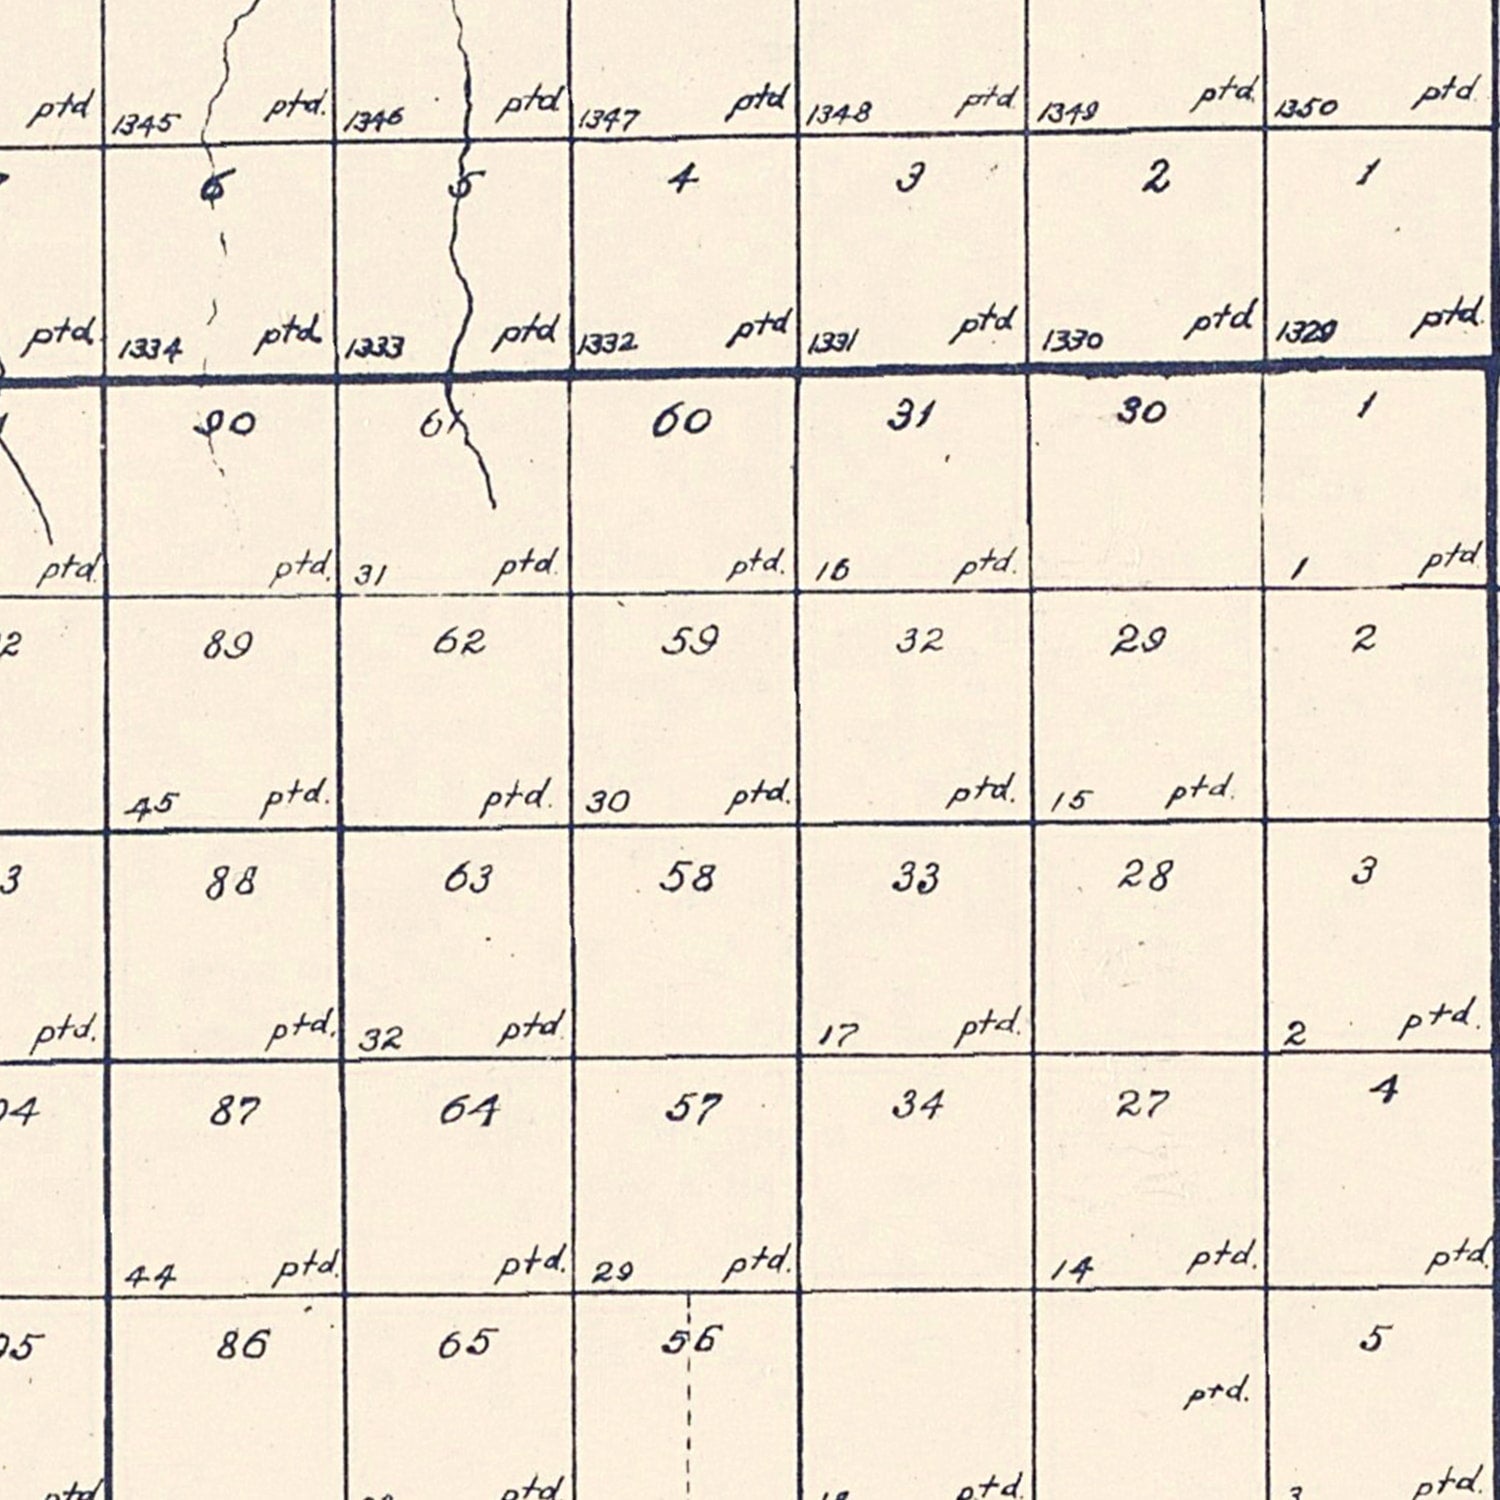 ptd 1345 ptd. 1346 ptd 1347 ptd 1348 ptd 1349 ptd. 1350 ptd
6 5 4 3 2 1
ptd. 1334 ptd. 1333 ptd 1332 ptd 1331 ptd 1330 ptd 1329 ptd.
90 61 60 31 30 1
ptd. ptd. 31 ptd. ptd. 16 ptd. 1 ptd
89 62 59 32 29 2
45 ptd. ptd. 30 ptd. ptd. 15 ptd.
88 63 58 33 28 3
ptd. ptd. 32 ptd. 17 ptd. 2 ptd.
87 64 57 34 27 4
44 ptd. ptd. 29 ptd. 14 ptd. ptd
86 65 56 5
ptd.
ptd ptd. ptd. ptd.